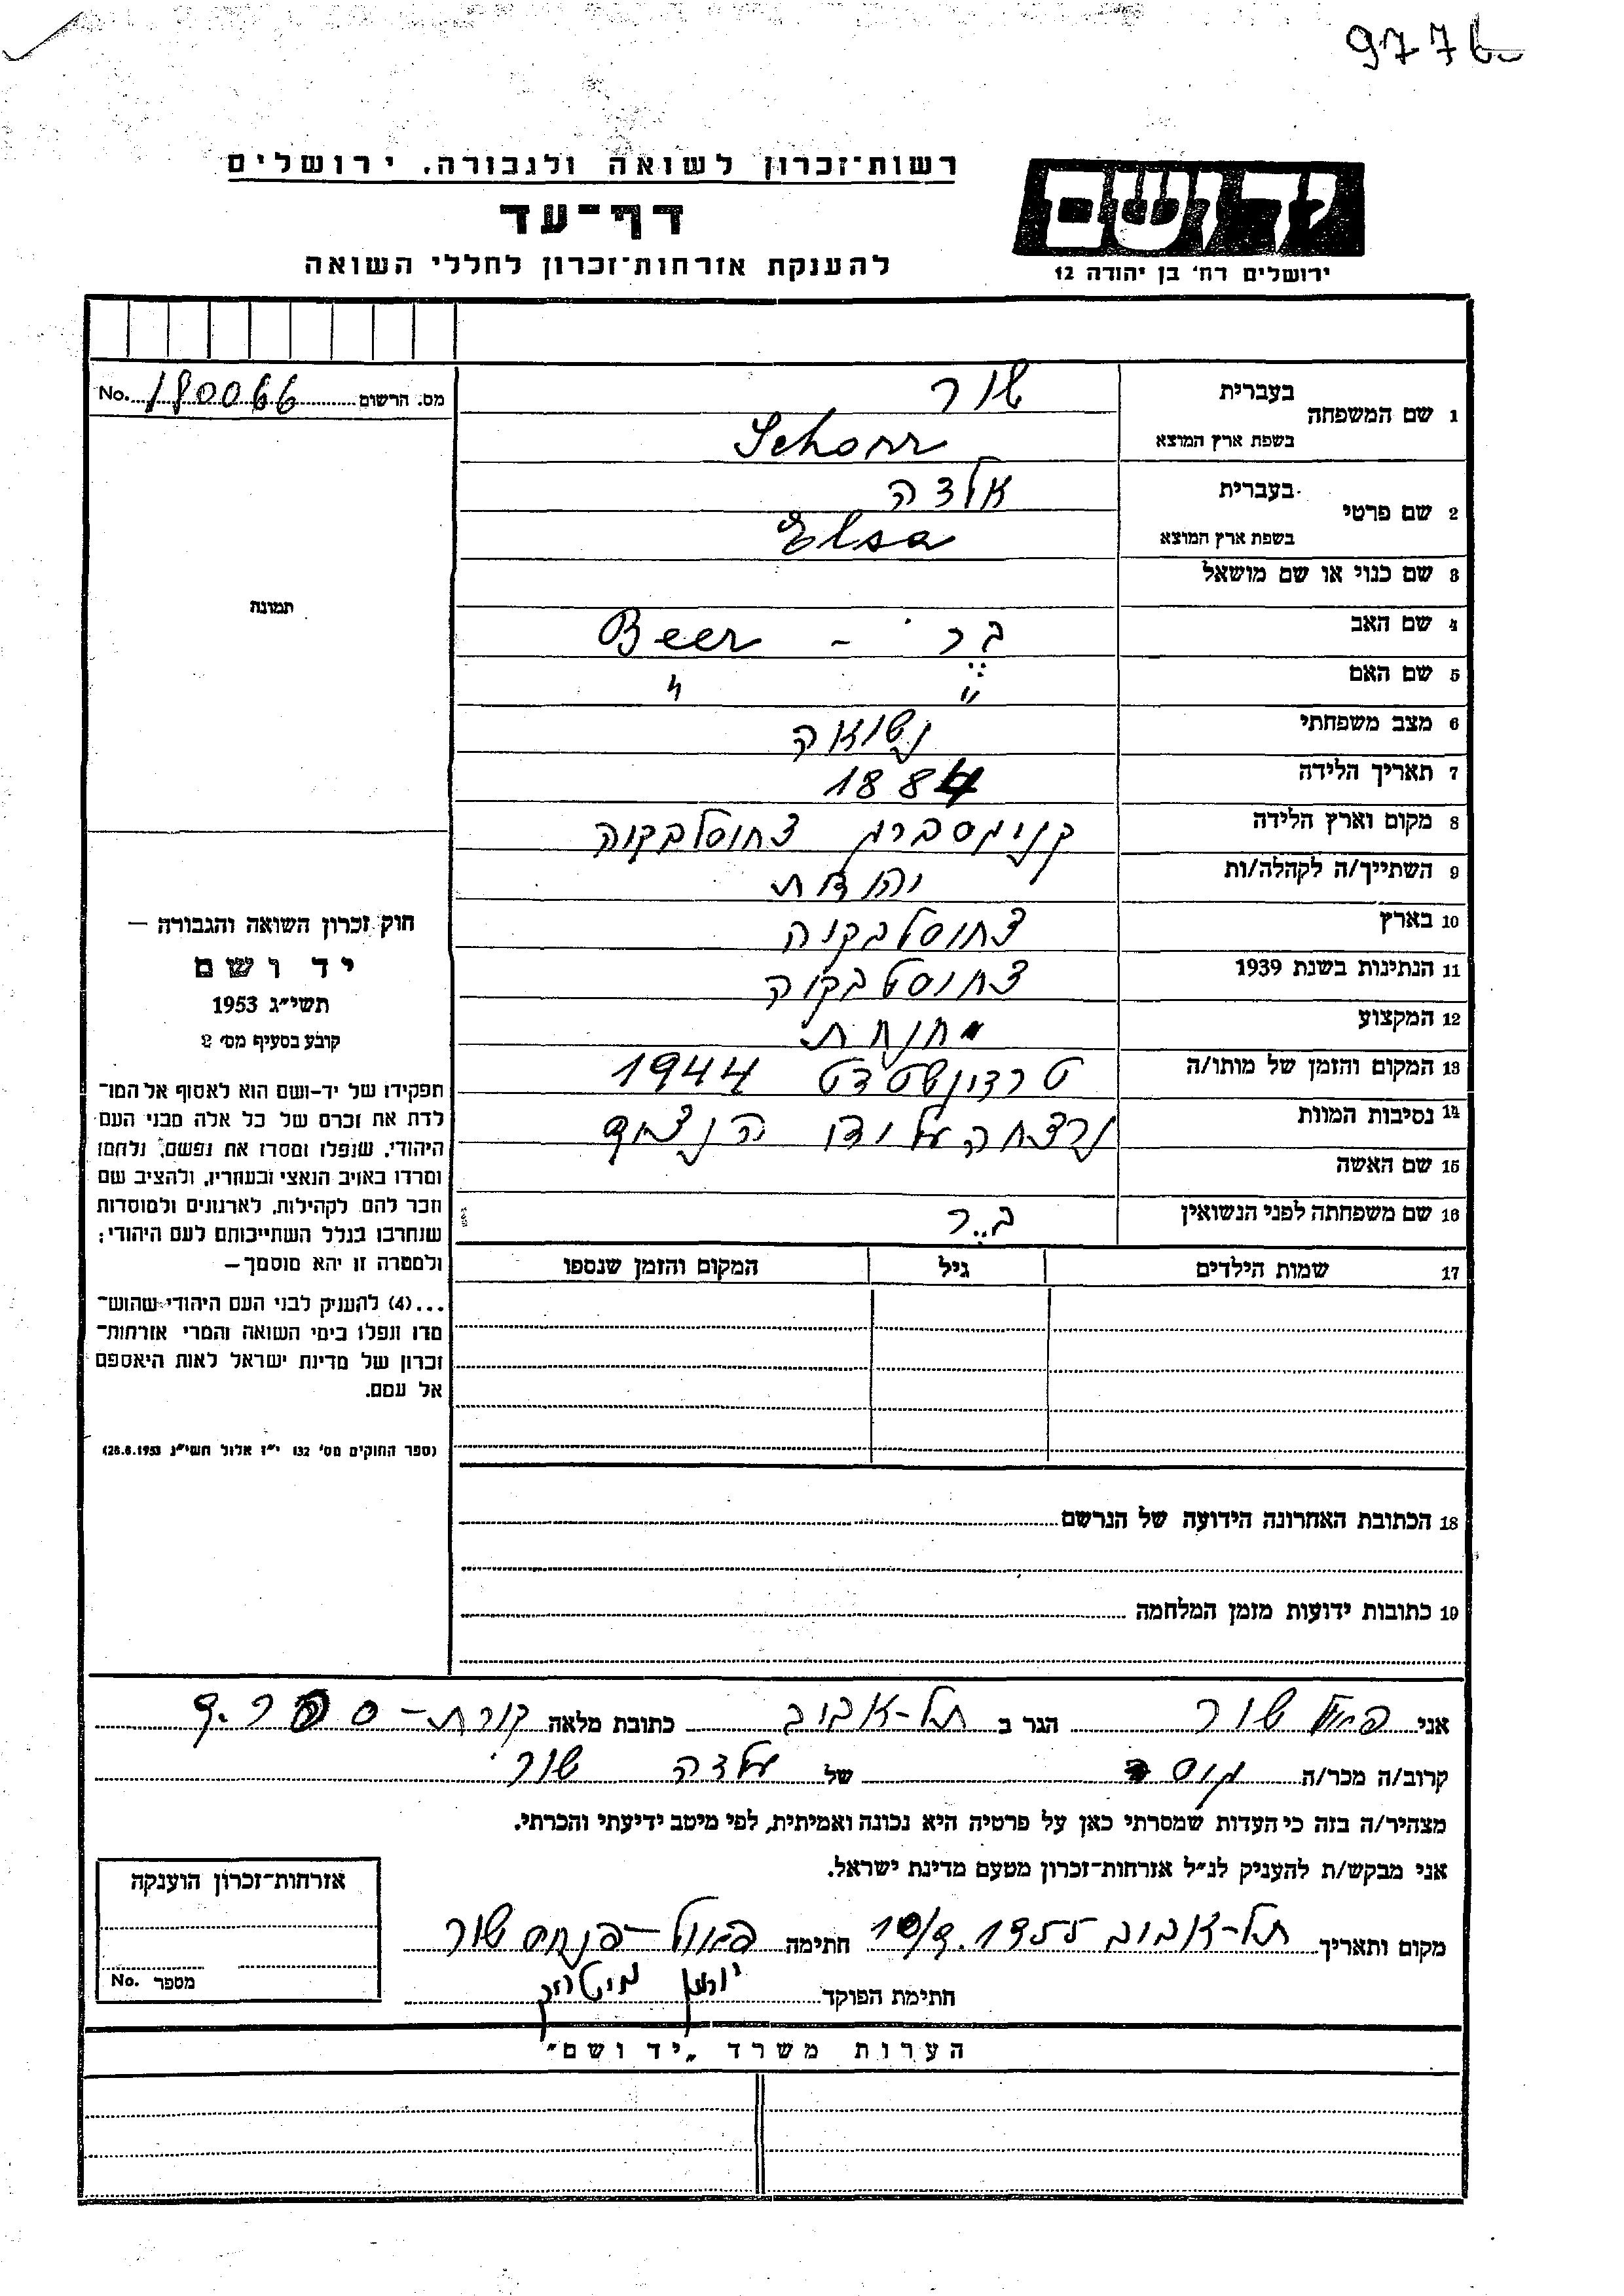 9776
רשות־זכרון לשואה ולגבורה. ירושלים
דף־עד
להענקת אזרחות־זכרון לחללי השואה
יד ושם
ירושלים רח' בן יהודה 12
מס. הרשום 180066 No.
1 שם המשפחה בעברית שור
בשפת ארץ המוצא Schorr
2 שם פרטי בעברית אלזה
בשפת ארץ המוצא Elsa
3 שם כנוי או שם מושאל
4 שם האב בר - Beer
5 שם האם " "
6 מצב משפחתי נשואה
7 תאריך הלידה 1884
8 מקום וארץ הלידה קניגסברג צ'כוסלבקיה
9 השתייך/ה לקהלה/ות יהודית
10 בארץ
11 הנתינות בשנת 1939
12 המקצוע
13 המקום והזמן של מותו/ה 1944
14 נסיבות המוות נרצחה על ידי
15 שם האשה
16 שם משפחתה לפני הנשואין בר
17 שמות הילדים גיל המקום והזמן שנספו
18 הכתובת האחרונה הידועה של הנרשם
19 כתובות ידועות מזמן המלחמה
תמונה
חוק זכרון השואה והגבורה —
יד ושם
תשי״ג 1953
קובע בסעיף מס' 2
תפקידו של יד-ושם הוא לאסוף אל המו־
לדת את זכרם של כל אלה מבני העם
היהודי, שנפלו ומסרו את נפשם, נלחמו
ומרדו באויב הנאצי ובעוזריו, ולהציב שם
וזכר להם לקהילות, לארגונים ולמוסדות
שנחרבו בגלל השתייכותם לעם היהודי;
ולמטרה זו יהא מוסמך —
...(4) להעניק לבני העם היהודי שהוש־
מדו ונפלו בימי השואה והמרי אזרחות־
זכרון של מדינת ישראל לאות היאספם
אל עמם.
(ספר החוקים מס' 132 י״ז אלול תשי״ג 28.8.1953)
אני שור הגר ב תל-אביב כתובת מלאה
קרוב/ה מכר/ה של אלזה שור
מצהיר/ה בזה כי העדות שמסרתי כאן על פרטיה היא נכונה ואמיתית, לפי מיטב ידיעתי והכרתי.
אני מבקש/ת להעניק לנ״ל אזרחות־זכרון מטעם מדינת ישראל.
מקום ותאריך תל-אביב חתימה פנחס שור
חתימת הפוקד
אזרחות־זכרון הוענקה
מספר No.
הערות משרד „יד ושם"